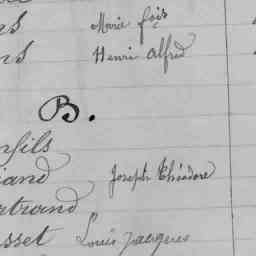 ns Marie fçis
ns Henri Alfred
B.
nfils
iand Joseph Théodore
rtrand
sset Louis Jacques